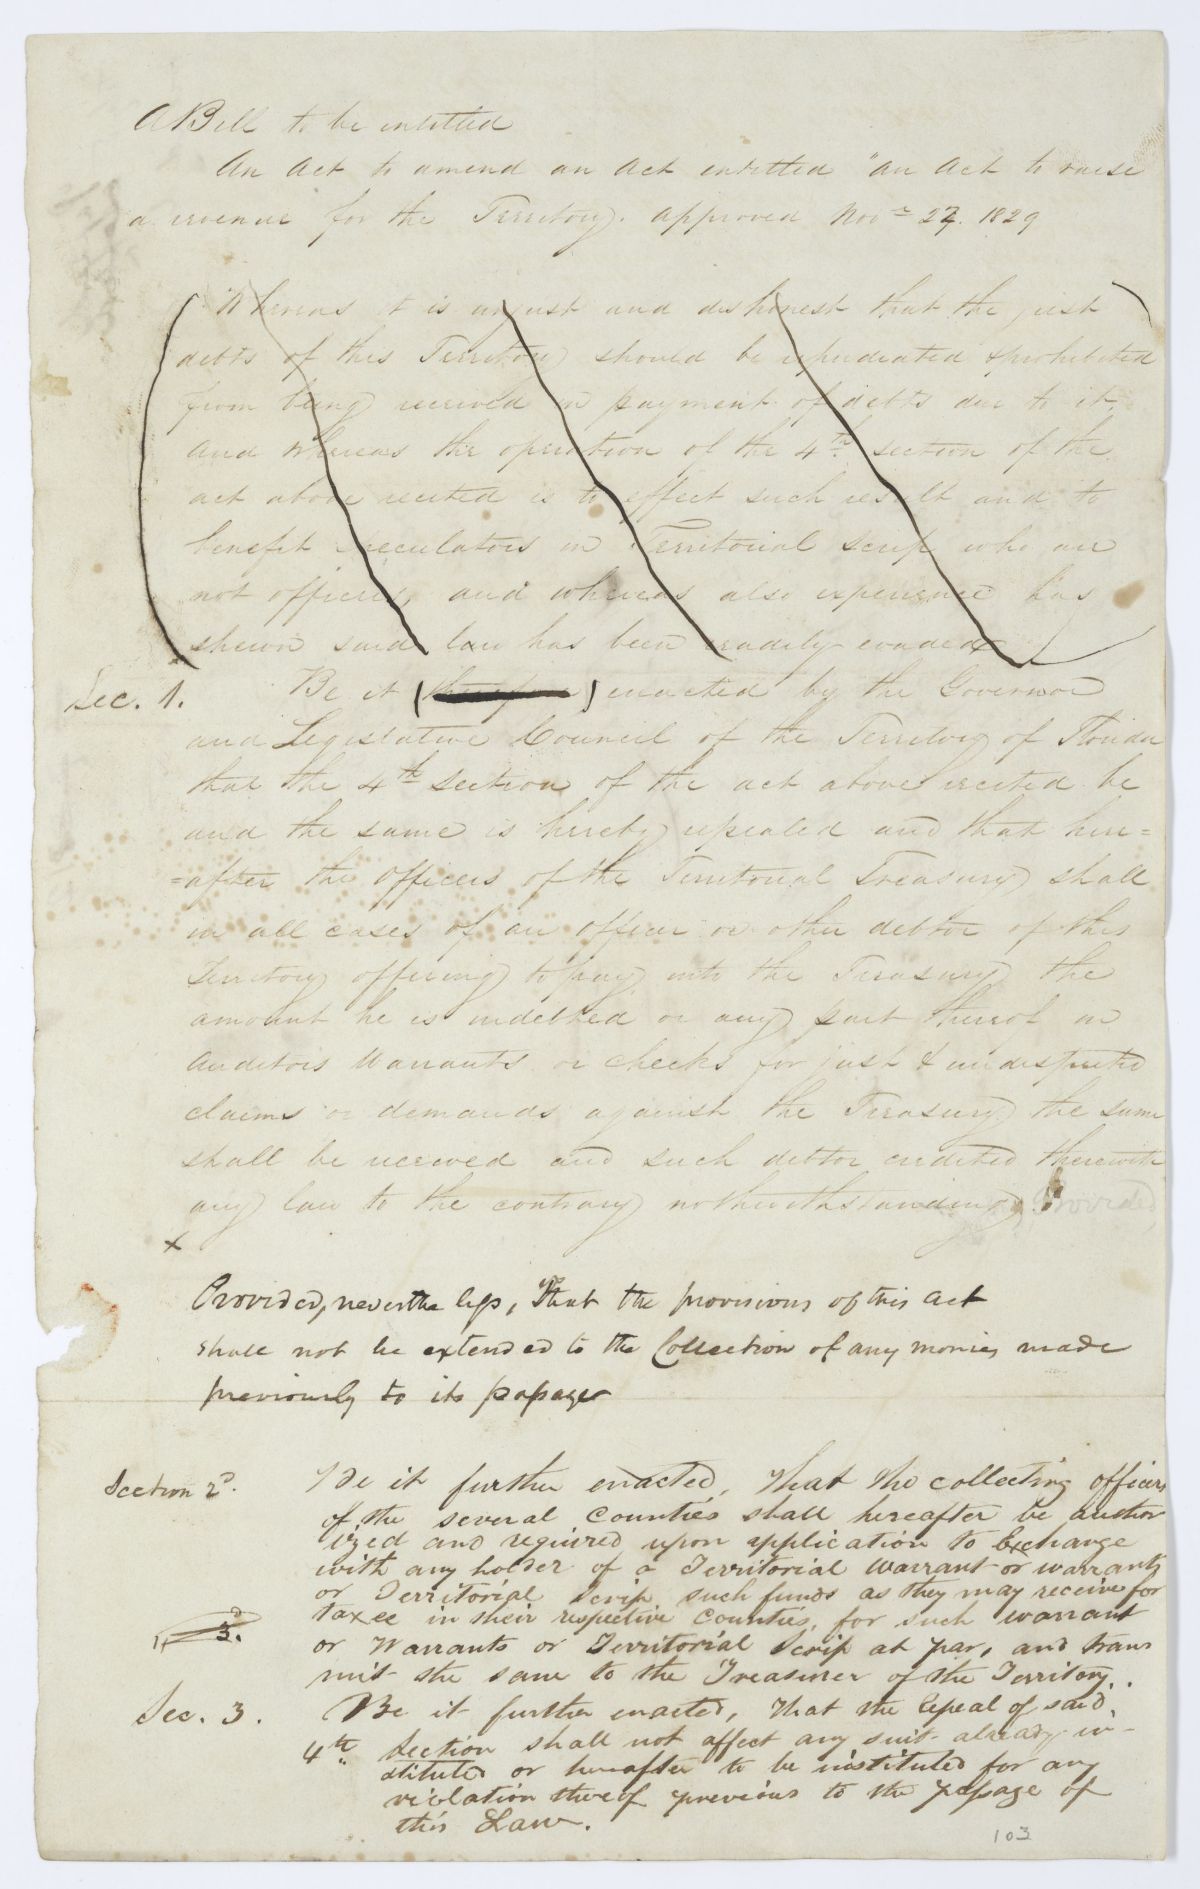 A Bill to be entitled
An Act to amend an Act entitled "An Act to raise
a revenue for the Territory. Approved Novr 22. 1829
Whereas it is unjust and dishonest that the just
debts of this Territory should be repudiated & prohibited
from being received in payment of debts due to it,
and whereas the operation of the 4th section of the
act above recited is to effect such result and to
benefit speculators in Territorial scrip who are
not officers, and whereas also experience has
shewn said law has been readily evaded
Sec. 1. Be it (therefore) enacted by the Governor
and Legislative Council of the Territory of Florida
that the 4th Section of the act above recited be
and the same is hereby repealed and that here=
=after the officers of the Territorial Treasury shall
in all cases of an officer or other debtor of this
Territory offering to pay into the Treasury the
amount he is indebted or any part thereof in
Auditors Warrants or checks for just & undisputed
claims or demands against the Treasury the same
shall be received and such debtor credited therewith
any law to the contrary nothwithstanding Provided,
x
Provided, nevertheless, That the provisions of this Act
shall not be extended to the Collection of any monies made
previously to its passage
Section 2d. Be it further enacted, That the collecting officers
of the several Counties shall hereafter be author
ized and required upon application to Exchange
with any holder of a Territorial Warrant or warrants
or Territorial Scrip such funds as they may receive for
taxes in their respective Counties, for such warrant
3.
or Warrants or Territorial Scrip at par, and trans
mit the same to the Treasurer of the Territory.
Sec. 3. Be it further enacted, That the repeal of said
4th Section shall not affect any suit already in-
stituted or hereafter to be instituted for any
violation thereof previous to the passage of
this Law.
103